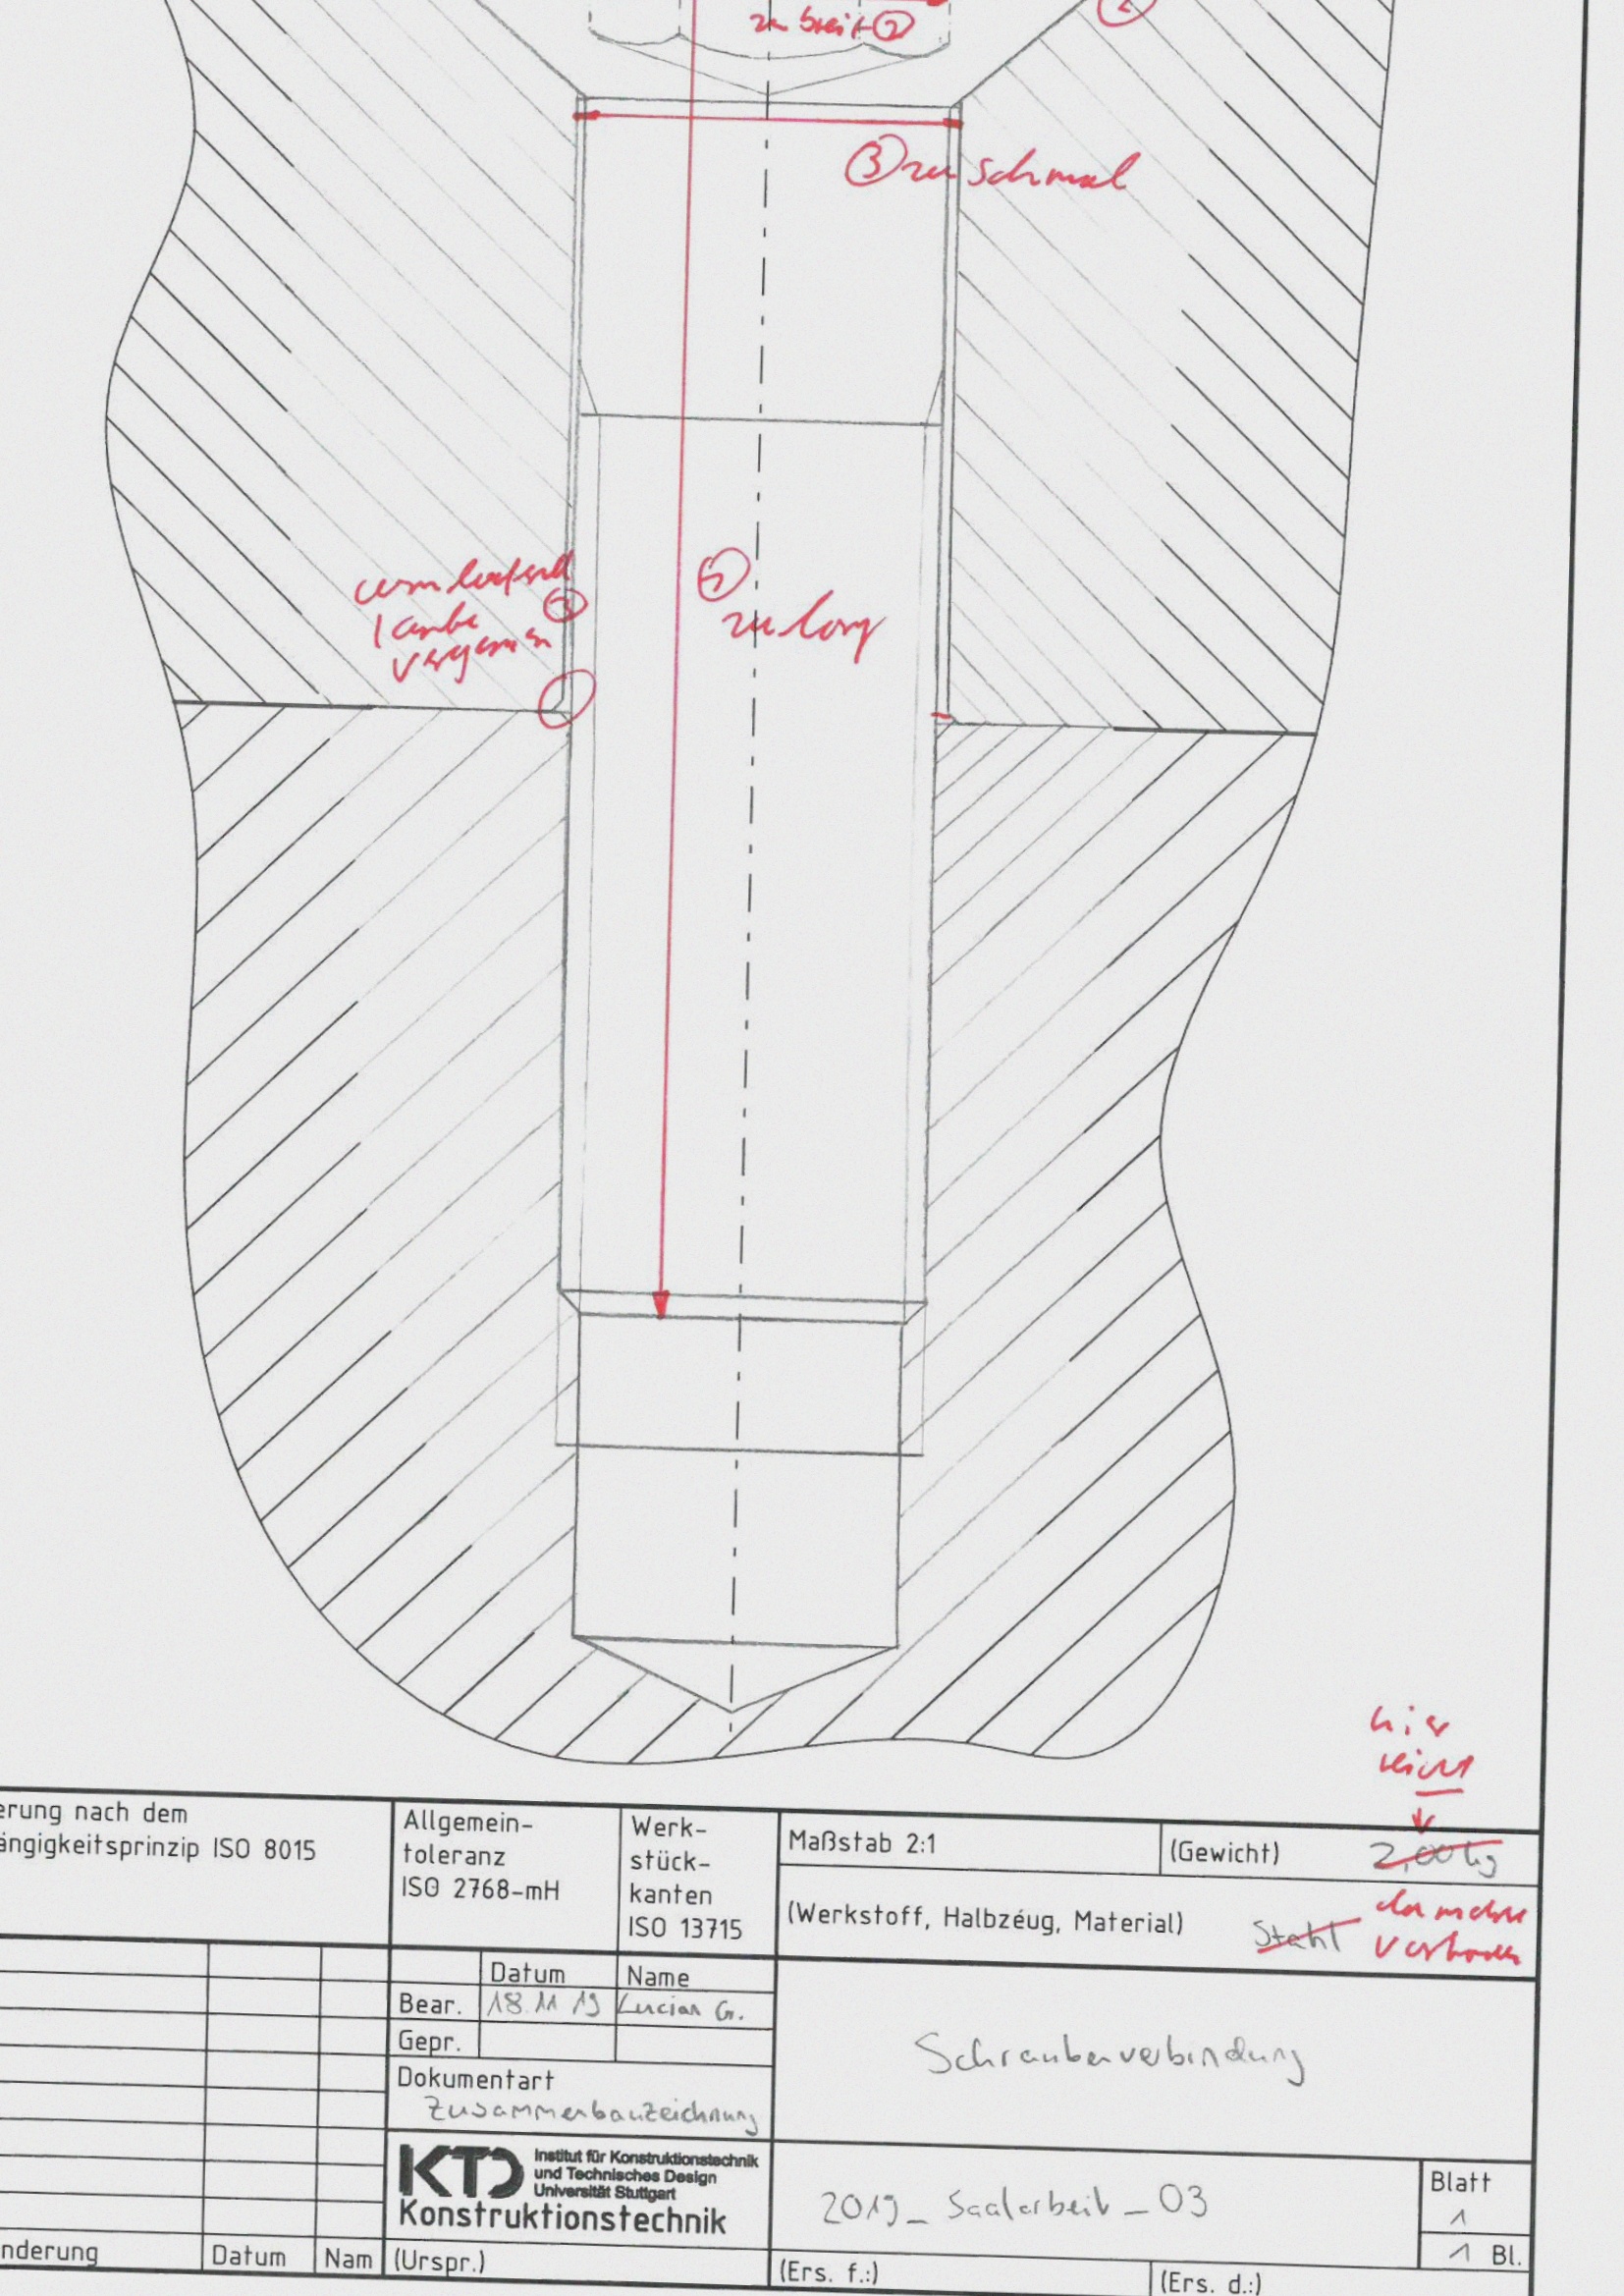 zu breit ②
②
③ zu schmal
umlaufend
③
Kante
vergessen
⑤
zu lang
hier
nicht
erung nach dem
ängigkeitsprinzip ISO 8015
Allgemein-
toleranz
ISO 2768-mH
Werk-
stück-
kanten
ISO 13715
Maßstab 2:1
(Gewicht)
2,00 kg
(Werkstoff, Halbzeug, Material)
Stahl
vorhanden
Datum
Name
Bear.
18.11.19
Lucian G.
Gepr.
Dokumentart
Zusammenbauzeichnung
Schraubenverbindung
KTD
Institut für Konstruktionstechnik
und Technisches Design
Universität Stuttgart
Konstruktionstechnik
2019_Saalarbeit_03
Blatt
1
1 Bl.
nderung
Datum
Nam
(Urspr.)
(Ers. f.:)
(Ers. d.:)